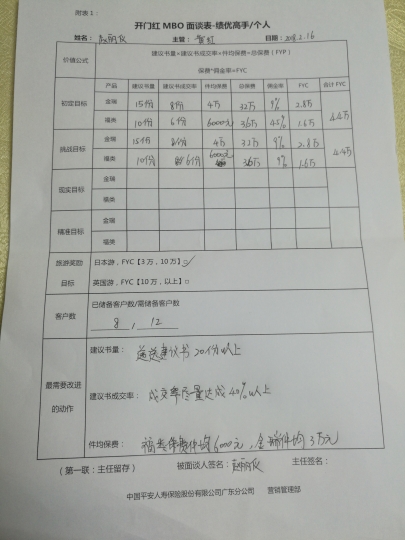 附表1：
开门红 MBO 面谈表-绩优高手/个人
姓名： 主管： 日期：2018.2.16
价值公式 建议书量*建议书成交率*件均保费=总保费（FYP）
保费*佣金率=FYC
产品 建议书量 建议书成交率 件均保费 总保费 佣金率 FYC 合计FYC
初定目标 金瑞 15份 8份 4万 32万 9% 2.8万 4.4万
福类 10份 6份 6000元 3.6万 45% 1.6万
挑战目标 金瑞 15份 8份 4万 32万 9% 2.8万 4.4万
福类 10份 6份 6000元 3.6万 9% 1.6万
现实目标 金瑞
福类
精准目标 金瑞
福类
旅游奖励 日本游，FYC【3万，10万】□✓
目标 英国游，FYC【10万，以上】□
客户数 已储备客户数/需储备客户数
8 , 12
最需要改进的动作
建议书量： 递送建议书20份以上
建议书成交率： 成交率尽量达成40%以上
件均保费： 福类保费件均6000元，金瑞件均3万元
（第一联：主任留存） 被面谈人签名： 主任签名：
中国平安人寿保险股份有限公司广东分公司 营销管理部